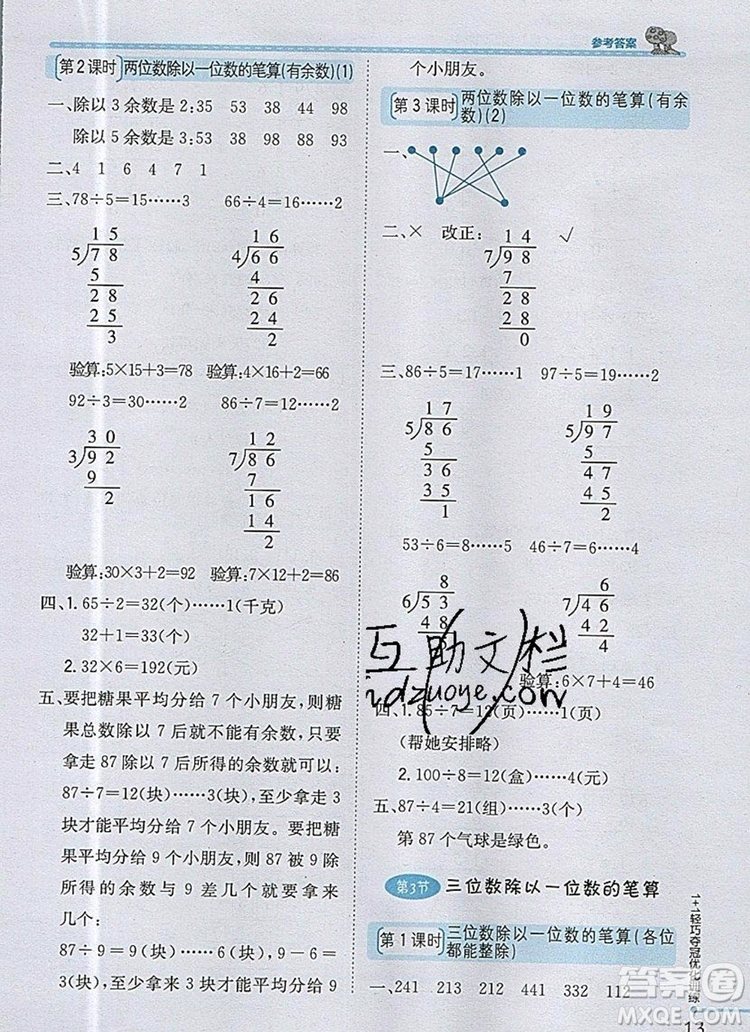 参考答案
第2课时 两位数除以一位数的笔算(有余数)(1)
一、除以3余数是2:35 53 38 44 98
除以5余数是3:53 38 98 88 93
二、4 1 6 4 7 1
三、78÷5=15……3 66÷4=16……2
15
5)78
5
28
25
3
16
4)66
4
26
24
2
验算:5×15+3=78 验算:4×16+2=66
92÷3=30……2 86÷7=12……2
30
3)92
9
2
12
7)86
7
16
14
2
验算:30×3+2=92 验算:7×12+2=86
四、1.65÷2=32(个)……1(千克)
32+1=33(个)
2.32×6=192(元)
五、要把糖果平均分给7个小朋友,则糖
果总数除以7后就不能有余数;只要
拿走87除以7后所得的余数即可:
87÷7=12(块)……3(块),至少拿走3
块才能平均分给7个小朋友。要把糖
果平均分给9个小朋友,87被9除所
得的余数与9差几就至少再拿来
几个:
87÷9=9(块)……6(块) 9-6=
3(块),至少再拿来3块才能平均分给9
个小朋友。
第3课时 两位数除以一位数的笔算(有余
数)(2)
一、
二、× 改正: √
14
7)98
7
28
28
0
三、86÷5=17……1 97÷5=19……2
17
5)86
5
36
35
1
19
5)97
5
47
45
2
53÷6=8……5 46÷7=6……4
8
6)53
48
6
7)46
42
4
验算:6×7+4=46
四、1.85÷7=12(页)……1(页)
(帮她安排略)
2.100÷8=12(盒)……4(元)
五、87÷4=21(组)……3(个)
第87个气球是绿色。
第3节 三位数除以一位数的笔算
第1课时 三位数除以一位数的笔算(各位
都能整除)
一、241 213 212 441 332 112
1+1轻巧夺冠优化训练
13
互助文栏
idzuoye.com
答案圈
MXQE.COM